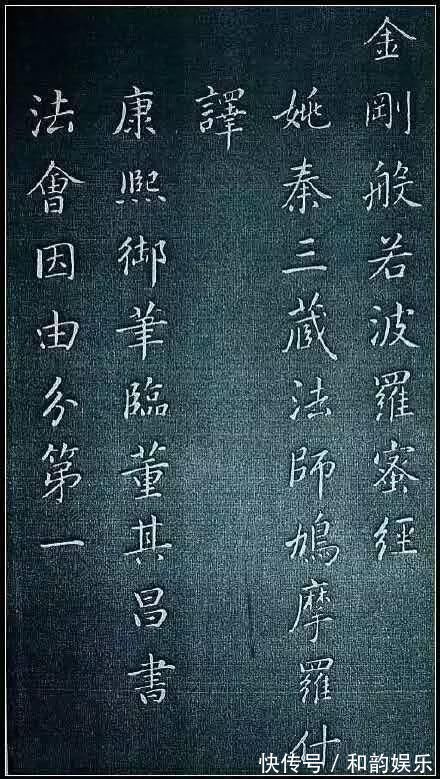 金剛般若波羅蜜經
姚秦三藏法師鳩摩羅什
譯
康熙御筆臨董其昌書
法會因由分第一
快传号/和韵娱乐